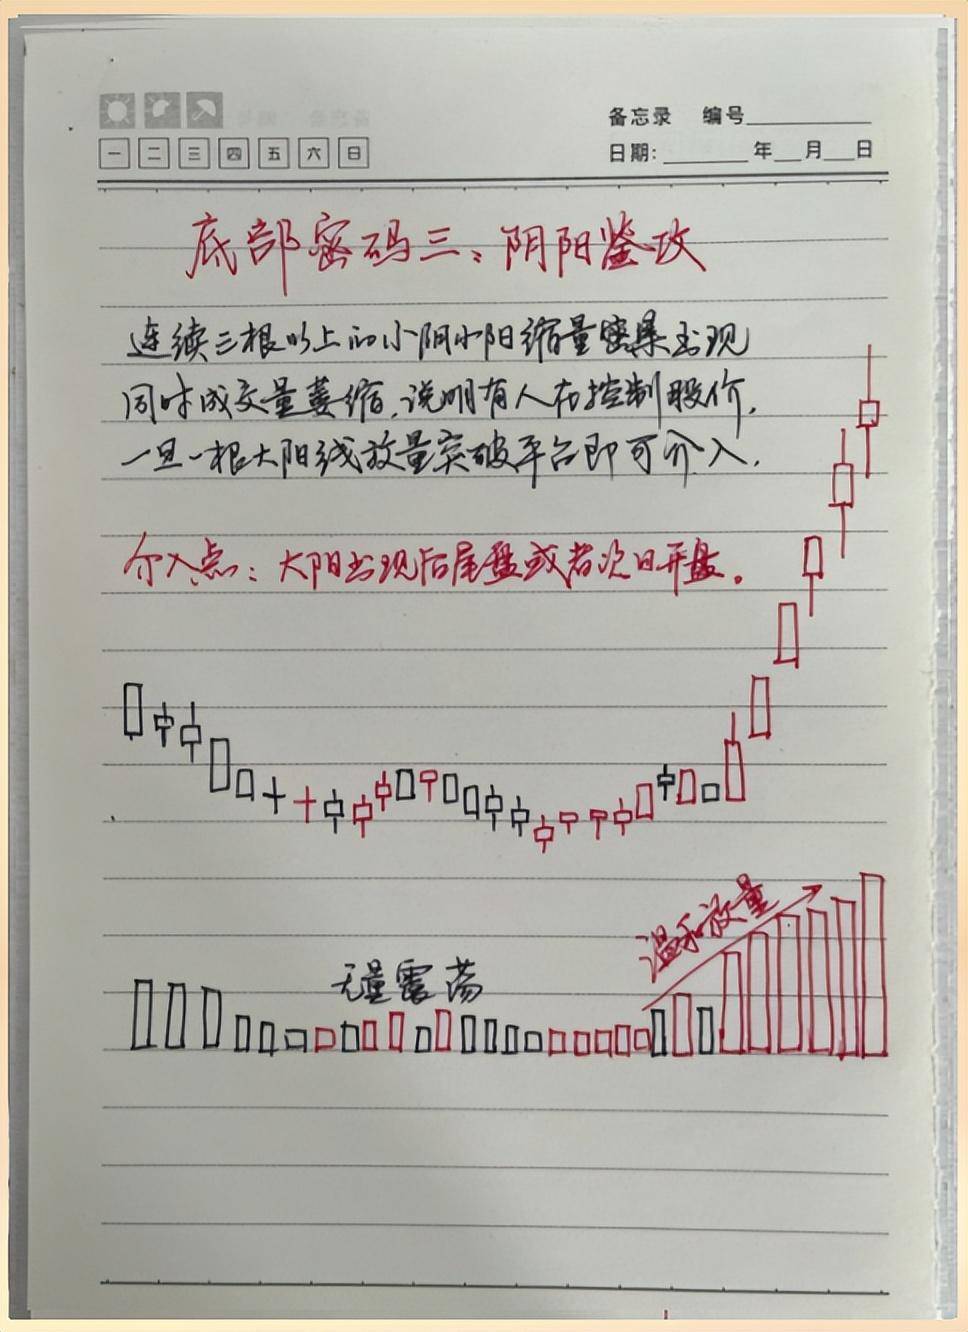 备忘录 编号
一 二 三 四 五 六 日
日期: 年 月 日
底部密码三：阴阳鉴攻
连续三根以上的小阴小阳缩量密集出现
同时成交量萎缩,说明有人在控制股价,
一旦一根大阳线放量突破平台即可介入.
介入点：大阳出现后尾盘或者次日开盘。
温和放量
无量震荡